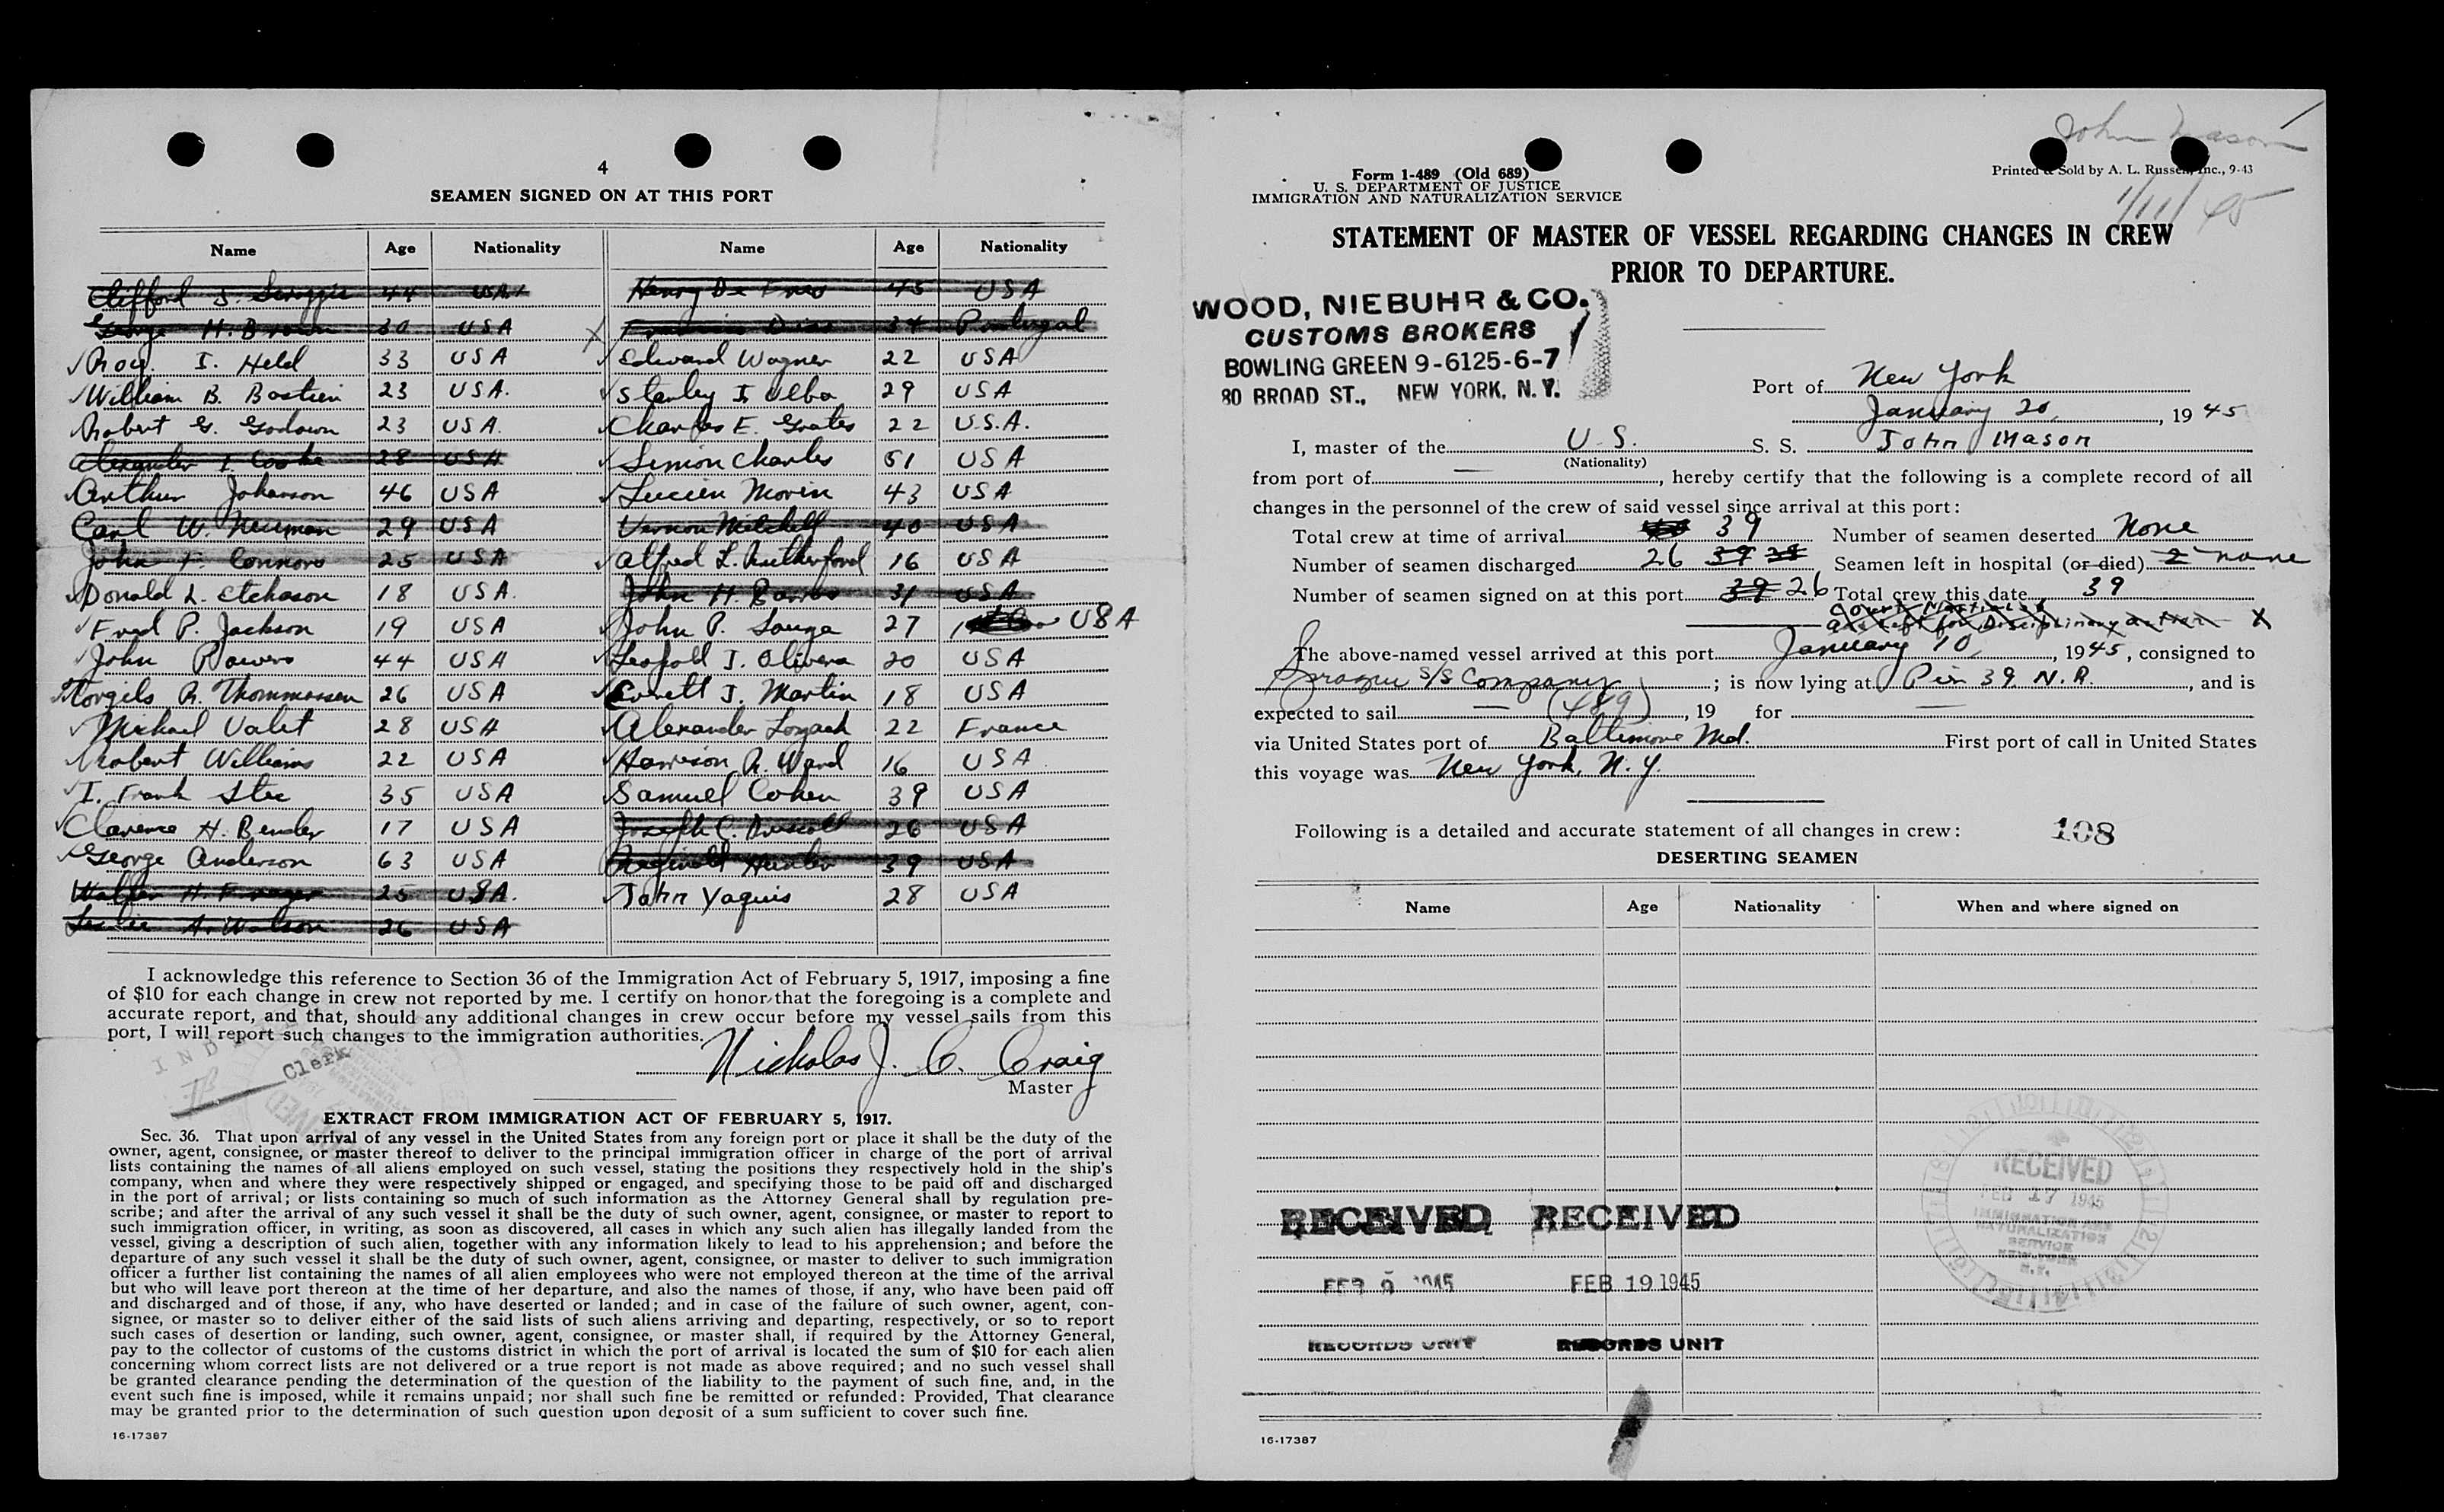 4
SEAMEN SIGNED ON AT THIS PORT
Name Age Nationality Name Age Nationality
Clifford J. 44 USA Henry De 45 USA
George H. Brown 30 USA X Dias 34 Portugal
✓ Roy I. Held 33 USA ✓ Edward Wagner 22 USA
✓ William B. Bastien 23 USA. ✓ Stanley J. 29 USA
✓ Robert G. Godown 23 USA. ✓ Charles E. Grates 22 U.S.A.
Alexander I. Cooke 28 USA ✓ Simon Charles 51 USA
✓ Arthur Johanson 46 USA ✓ Lucien Morin 43 USA
Carl W. Neuman 29 USA Vernon Mitchell 40 USA
John F. Connors 25 USA ✓ Alfred L. Rutherford 16 USA
✓ Donald L. Etchason 18 USA. John H. 31 USA
✓ Fred P. Jackson 19 USA ✓ John P. Souza 27 USA
✓ John Powers 44 USA ✓ Leopold J. Olivera 20 USA
✓ Torgils R. Thommassen 26 USA ✓ Everett J. Martin 18 USA
✓ Michael Valet 28 USA ✓ Alexander 22 France
✓ Robert Williams 22 USA ✓ Harrison R. Ward 16 USA
✓ I. Frank Stec 35 USA ✓ Samuel Cohen 39 USA
✓ Clarence H. Bender 17 USA Joseph C. Driscoll 26 USA
✓ George Anderson 63 USA Reginald Hunter 39 USA
Walter H. 25 USA. ✓ John Yaquis 28 USA
Leslie A. Watson 26 USA
I acknowledge this reference to Section 36 of the Immigration Act of February 5, 1917, imposing a fine
of $10 for each change in crew not reported by me. I certify on honor that the foregoing is a complete and
accurate report, and that, should any additional changes in crew occur before my vessel sails from this
port, I will report such changes to the immigration authorities.
Clerk
Nicholas J. C. Craig
Master
EXTRACT FROM IMMIGRATION ACT OF FEBRUARY 5, 1917.
Sec. 36. That upon arrival of any vessel in the United States from any foreign port or place it shall be the duty of the
owner, agent, consignee, or master thereof to deliver to the principal immigration officer in charge of the port of arrival
lists containing the names of all aliens employed on such vessel, stating the positions they respectively hold in the ship's
company, when and where they were respectively shipped or engaged, and specifying those to be paid off and discharged
in the port of arrival; or lists containing so much of such information as the Attorney General shall by regulation pre-
scribe; and after the arrival of any such vessel it shall be the duty of such owner, agent, consignee, or master to report to
such immigration officer, in writing, as soon as discovered, all cases in which any such alien has illegally landed from the
vessel, giving a description of such alien, together with any information likely to lead to his apprehension; and before the
departure of any such vessel it shall be the duty of such owner, agent, consignee, or master to deliver to such immigration
officer a further list containing the names of all alien employees who were not employed thereon at the time of the arrival
but who will leave port thereon at the time of her departure, and also the names of those, if any, who have been paid off
and discharged and of those, if any, who have deserted or landed; and in case of the failure of such owner, agent, con-
signee, or master so to deliver either of the said lists of such aliens arriving and departing, respectively, or so to report
such cases of desertion or landing, such owner, agent, consignee, or master shall, if required by the Attorney General,
pay to the collector of customs of the customs district in which the port of arrival is located the sum of $10 for each alien
concerning whom correct lists are not delivered or a true report is not made as above required; and no such vessel shall
be granted clearance pending the determination of the question of the liability to the payment of such fine, and, in the
event such fine is imposed, while it remains unpaid; nor shall such fine be remitted or refunded: Provided, That clearance
may be granted prior to the determination of such question upon deposit of a sum sufficient to cover such fine.
16-17387
John Mason
Form 1-489 (Old 689)
U. S. DEPARTMENT OF JUSTICE
IMMIGRATION AND NATURALIZATION SERVICE
Printed & Sold by A. L. Russell, Inc., 9-43
1/11/45
STATEMENT OF MASTER OF VESSEL REGARDING CHANGES IN CREW
PRIOR TO DEPARTURE.
WOOD, NIEBUHR & CO.
CUSTOMS BROKERS
BOWLING GREEN 9-6125-6-7
80 BROAD ST., NEW YORK, N. Y.
Port of New York
January 20, 1945
I, master of the U.S. S. S. John Mason
(Nationality)
from port of —, hereby certify that the following is a complete record of all
changes in the personnel of the crew of said vessel since arrival at this port:
Total crew at time of arrival 39 Number of seamen deserted None
Number of seamen discharged 26 39 28 Seamen left in hospital (or died) 2 none
Number of seamen signed on at this port 39 26 Total crew this date 39
Court Martialed
and left for Disciplinary action X
The above-named vessel arrived at this port January 10, 1945, consigned to
Sprague S/S Company; is now lying at Pier 39 N.R., and is
expected to sail — (489), 19 for —
via United States port of Baltimore Md. First port of call in United States
this voyage was New York, N.Y.
Following is a detailed and accurate statement of all changes in crew: 108
DESERTING SEAMEN
Name Age Nationality When and where signed on
RECEIVED
FEB 17 1945
IMMIGRATION AND
NATURALIZATION
SERVICE
NEW YORK
N.Y.
RECEIVED RECEIVED
FEB 9 1945 FEB 19 1945
RECORDS UNIT RECORDS UNIT
16-17387